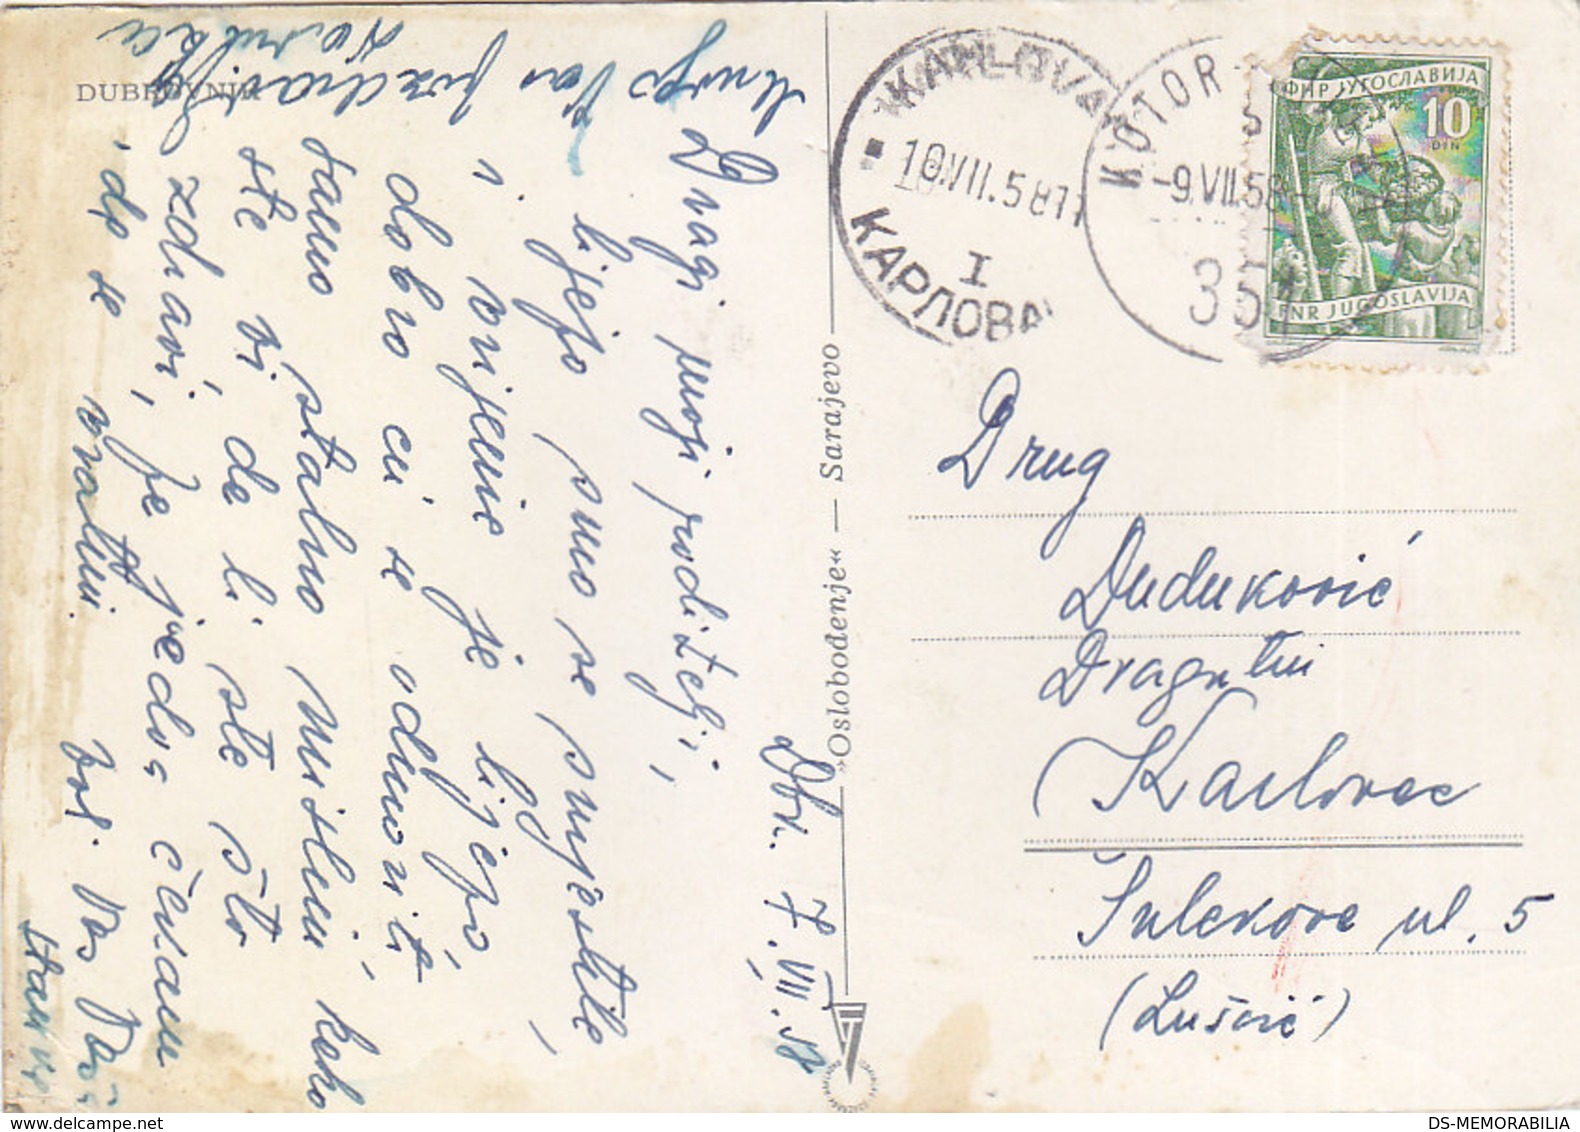 DUBROVNIK
Dbk. 7.VII.58
Dragi moji roditelji,
lijepo smo se smjestile,
i vrijeme je lijepo,
dobro ću se odmoriti
samo stalno mislim, kako
ste vi da li ste što
zdravi, je jedva čekam
da se vratim.
još. Vas
Mnogo Vas pozdravlja
»Oslobođenje« — Sarajevo
KARLOVA
10.VII.58 17
I
КАРЛОВА
KOTOR
-9.VII.58-
35
ФНР ЈУГОСЛАВИЈА
10
DIN
FNR JUGOSLAVIJA
Drug
Duduković
Dragutin
Karlovac
Šulekova ul. 5
(Lušćić)
DS-MEMORABILIA